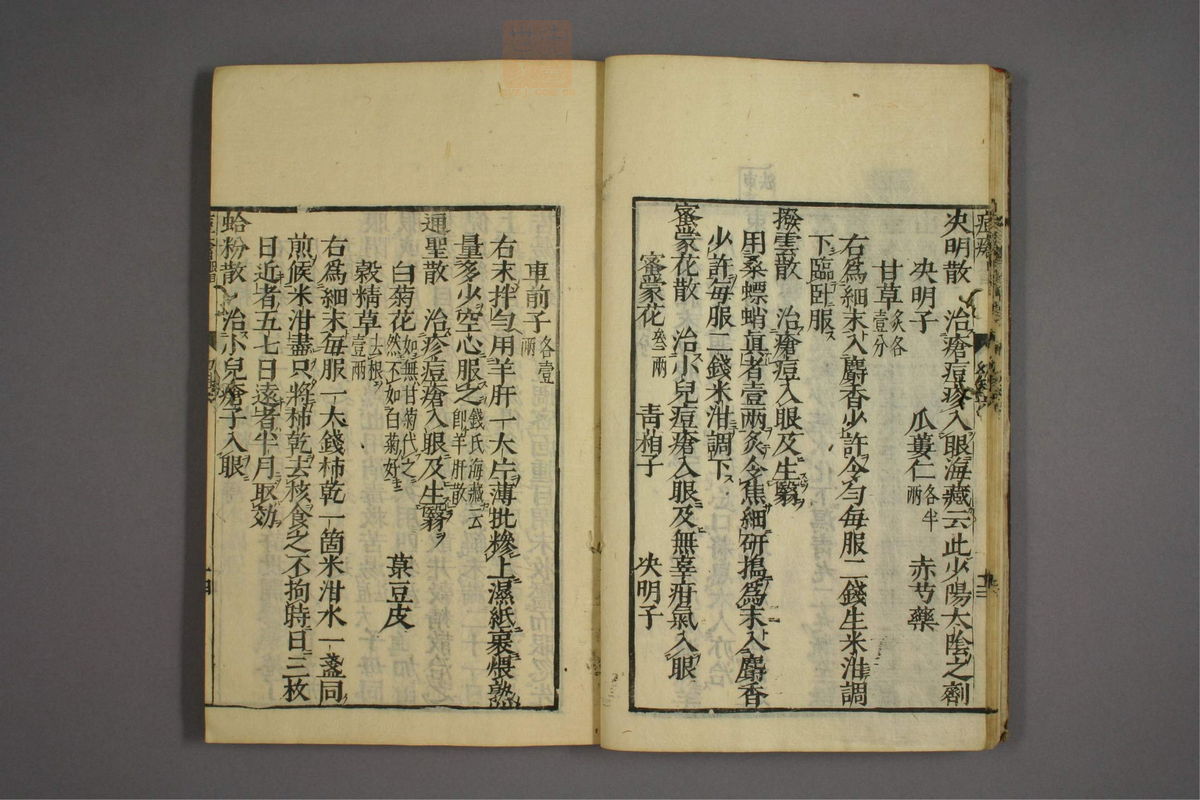 决明散　治瘡痘疹入眼海藏云此少陽太陰之劑
决明子　瓜蔞仁各半兩　赤芍藥
甘草炙各壹分
右爲細末入麝香少許令勻每服二錢生米泔調
下臨卧服
撥雲散　治瘡痘入眼及生翳
用桑螵蛸眞者壹兩炙令焦細研搗爲末入麝香
少許每服二錢米泔調下
蜜蒙花散　治小兒痘瘡入眼及無辜疳氣入眼
蜜蒙花叁兩　靑葙子　决明子
車前子各壹兩
右末拌勻用羊肝一大片薄批糝上濕紙裹煨熟
量多少空心服之錢氏海藏云即羊肝散
通聖散　治疹痘瘡入眼及生翳
白菊花如無甘菊代之然不如白菊好　菉豆皮
穀精草去根壹兩
右爲細末每服一大錢柿乾一箇米泔水一盞同
煎候米泔盡只將柿乾去核食之不拘時日三枚
日近者五七日遠者半月取効
蛤粉散　治小兒瘡子入眼